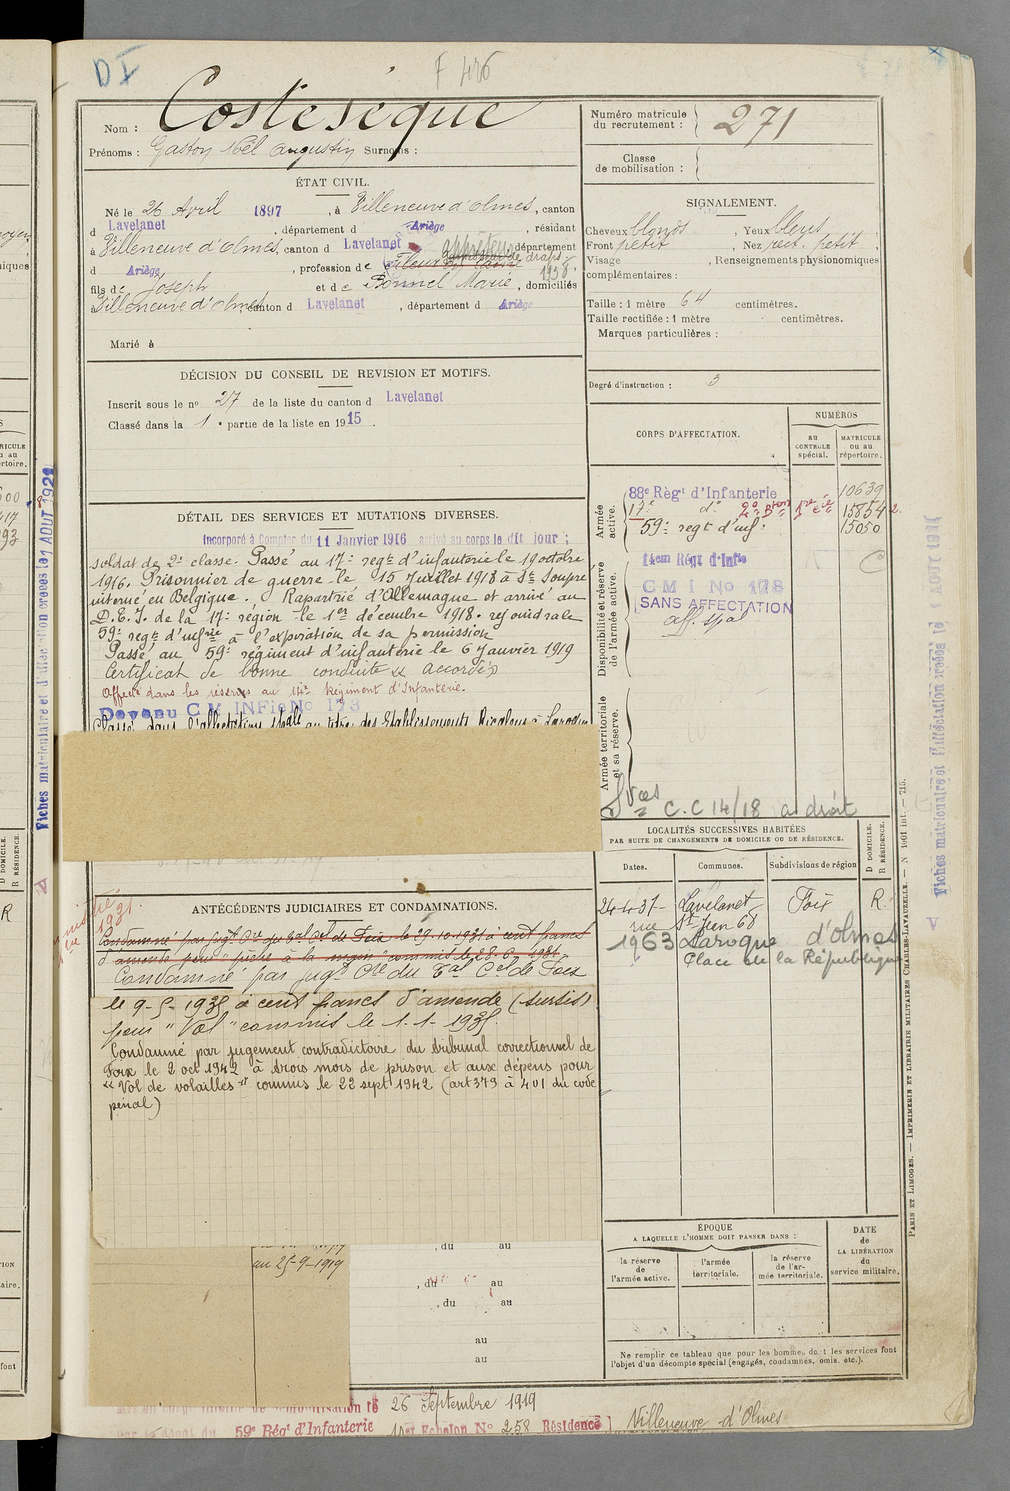 D I
F 426
Nom : Costeseque
Prénoms : Gaston Noël Augustin Surnoms :
Numéro matricule du recrutement : 271
Classe de mobilisation :
ÉTAT CIVIL.
Né le 26 Avril 1897, à Villeneuve d'Olmes, canton
d Lavelanet, département d Ariège, résidant
à Villeneuve d'Olmes, canton d Lavelanet département
d Ariège, profession de apprêteur de draps 1938
fils de Joseph et de Bonnel Marie, domiciliés
à Villeneuve d'Olmes, canton d Lavelanet, département d Ariège
Marié à
SIGNALEMENT.
Cheveux blonds, Yeux bleus
Front petit, Nez rect. petit,
Visage , Renseignements physionomiques
complémentaires :
Taille : 1 mètre 64 centimètres.
Taille rectifiée : 1 mètre centimètres.
Marques particulières :
Degré d'instruction : 3
DÉCISION DU CONSEIL DE REVISION ET MOTIFS.
Inscrit sous le no 27 de la liste du canton d Lavelanet
Classé dans la 1e partie de la liste en 1915.
DÉTAIL DES SERVICES ET MUTATIONS DIVERSES.
Incorporé à Compter du 11 Janvier 1916 arrivé au corps le dit jour ;
soldat de 2e classe. Passé au 17e regt d'infanterie le 19 octobre
1916. Prisonnier de guerre le 15 Juillet 1918 à Ste Souple
interné en Belgique. Rapatrié d'Allemagne et arrivé au
D.E.I. de la 17e région le 1er décembre 1918. rejoindra le
59e regt d'infrie à l'expiration de sa permission
Passé au 59e régiment d'infanterie le 6 Janvier 1919
Certificat de bonne conduite « Accordé »
Affecté dans les réserves au 14e Régiment d'Infanterie.
Devenu C M INFie No 178
Passé dans l'affectation spéciale au titre des Etablissements Ricalens à Laroque
CORPS D'AFFECTATION.
NUMÉROS
AU CONTROLE spécial.
MATRICULE OU AU répertoire.
Armée active.
88e Régt d'Infanterie 10639
17e do 2e Bton 1re cie 15854
59e regt d'inf. 15050
Disponibilité et réserve de l'armée active.
14em Régt d'Infie
C M I No 178
SANS AFFECTATION
aff. spal
C
Armée territoriale et sa réserve.
Svces C.C 14/18 a droit
LOCALITÉS SUCCESSIVES HABITÉES
PAR SUITE DE CHANGEMENTS DE DOMICILE OU DE RÉSIDENCE.
Dates. Communes. Subdivisions de région
D DOMICILE.
R RÉSIDENCE.
24-4-37- Lavelanet Foix R.
rue St Jean 68
1963 Laroque d'olmes
Place de la République
ANTÉCÉDENTS JUDICIAIRES ET CONDAMNATIONS.
Condamné par jugt Cre du Tal Cel de Foix le 29.10.1931 à cent francs
d'amende pour "pêche à la main" commis le 28-6-1931.
Condamné par jugt Cre du Tal Cel de Foix
le 9-5-1935 à cent francs d'amende (sursis)
pour "Vol" commis le 1-1-1935.
Condamné par jugement contradictoire du tribunal correctionnel de
Foix le 2 oct 1942 à trois mois de prison et aux dépens pour
"Vol de volailles" commis le 22 sept 1942 (art 379 à 401 du code
pénal)
, du au
au 25-9-1919
, du au
, du au
au
au
ÉPOQUE
A LAQUELLE L'HOMME DOIT PASSER DANS :
la réserve de l'armée active.
l'armée territoriale.
la réserve de l'armée territoriale.
DATE de LA LIBÉRATION du service militaire.
Ne remplir ce tableau que pour les hommes dont les services font
l'objet d'un décompte spécial (engagés, condamnés, omis, etc.).
26 Septembre 1919
59e Régt d'Infanterie 1er Echelon No 258 Résidence Villeneuve-d'Olmes
PARIS ET LIMOGES. — IMPRIMERIE ET LIBRAIRIE MILITAIRES CHARLES-LAVAUZELLE.
Fiches matriculaire et d'affectation créées le 1 AOUT 1929